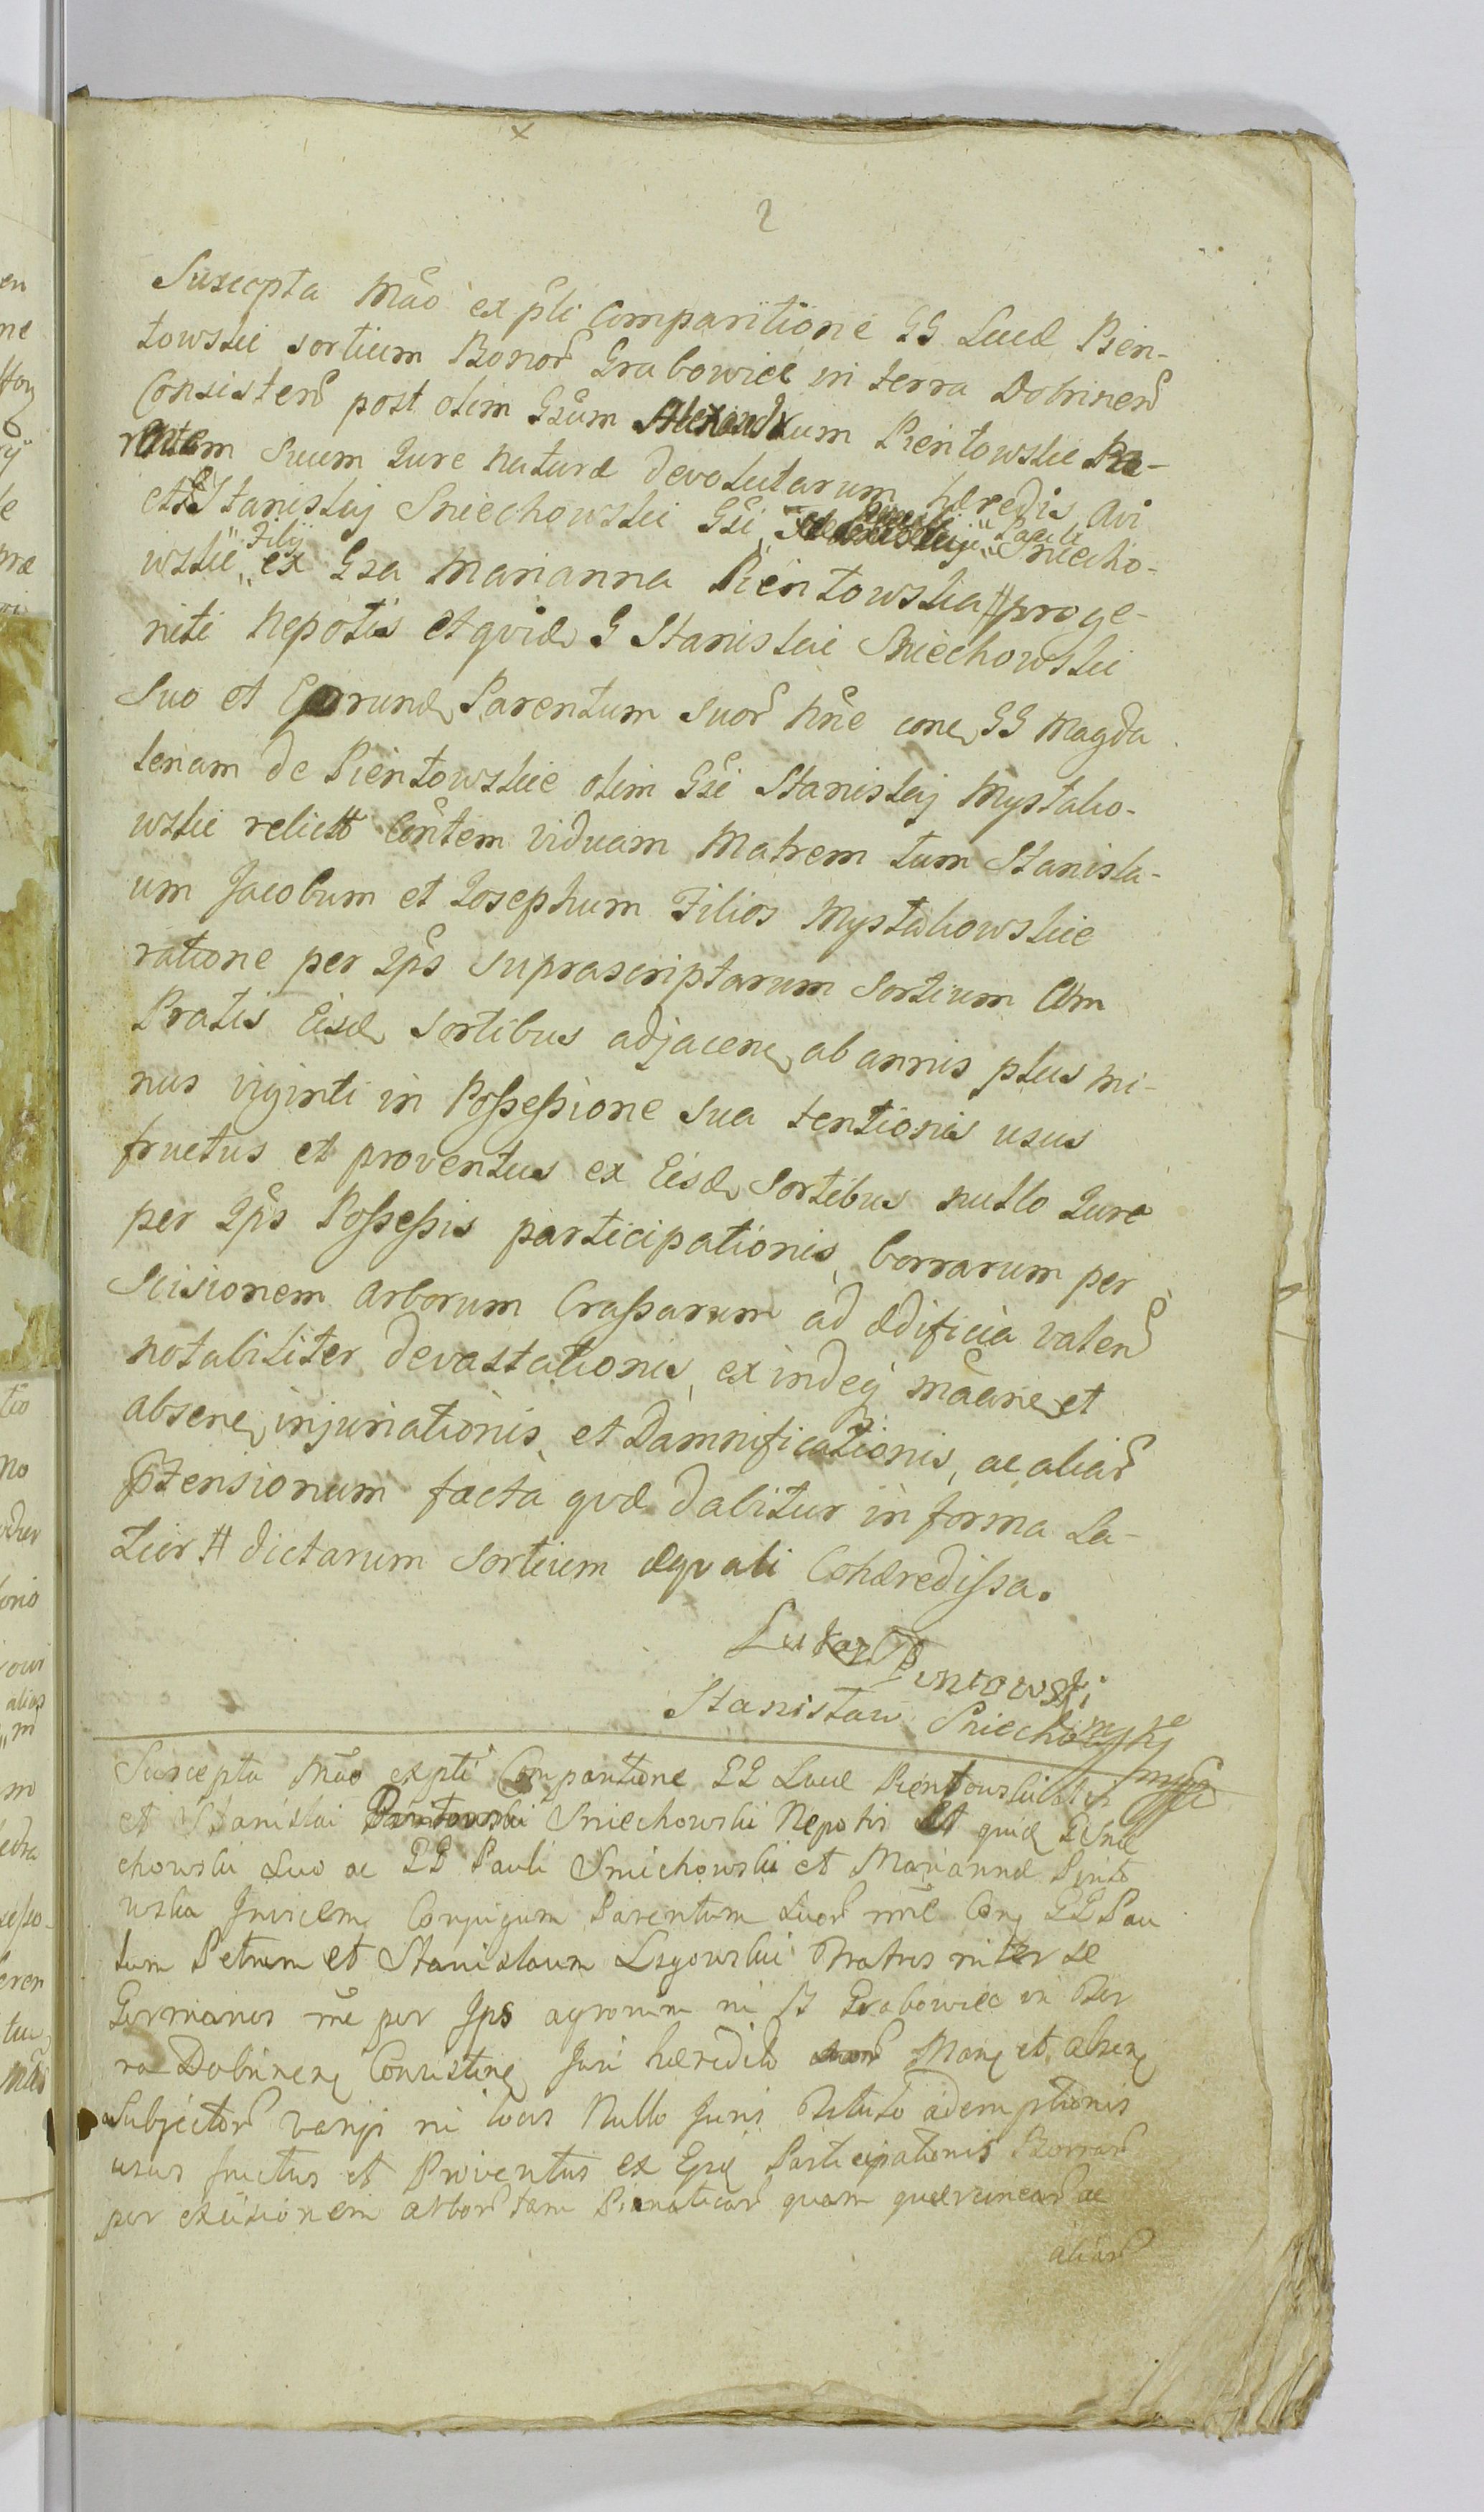 2
Suscepta Mão ex pti Comparitione GG Lucæ Pien-
towskie sortium Bonor Grabowiec in terra Dobrinen
Consisten post olim Gsum Alexandrum Pientowskie Pa-
rentem Suum Jure naturæ devolutarum hæredis, Avi
et G Stanislaj Sniechowskie Gsi Pauli Sniecho-
wskie Filij ex Gsa Marianna Pientowska # proge-
niti Nepotis et quid G Stanislai Sniechowskie
Suo et Eorund Parentum Suor Nne cone GG Magda
lenam de Pientowskie olim Gsi Stanislaj Mystako-
wskie relictt Contem viduam Matrem tum Stanisla-
um Jacobum et Josephum Filios Mystakowskie
ratione per Ips suprascriptarum Sortium Cum
Pratis Eisd Sortibus adjacen ab annis plus mi-
nus viginti in Possessione sua tentionis usus
fructus et proventus ex Eisd Sortibus nullo Jure
per Ips Possessis participationis, borrarum per
Scisionem Arborum Crassarum ad ædificia valen
notabiliter devastationis, exindeq maarie et
absene injuriationis et Damnificationis, ac aliar
ptensionum facta quæ dabitur in forma La-
tior # dictarum Sortium æquali Cohæredissa.
Lukasz Pientowski
Stanisław Sniechowski mpp
Suscepta Mão ex pti Comparitione GG Lucæ Pientowskie
et Stanislai Sniechowskii Nepotis Et quid G Snie
chowskii Suo ac GG Pauli Sniechowskii et Mariannæ Pinto
wska Invicem Conjugum Parentum Suor nne Con GG Pau
lum Petrum et Stanislaum Fratres inter se
Germanos rne per Ips agrorum in B Grabowiec in Ter
ra Dobrinen Consisten Juri hæredit suor Man et absen
Subjector varijs in locis Nullo Juris Titulo ademptionis
usus fructus et Proventus ex Eisd Participationis Borrar
per exscisionem arbor tam quam quercinear ac
aliar